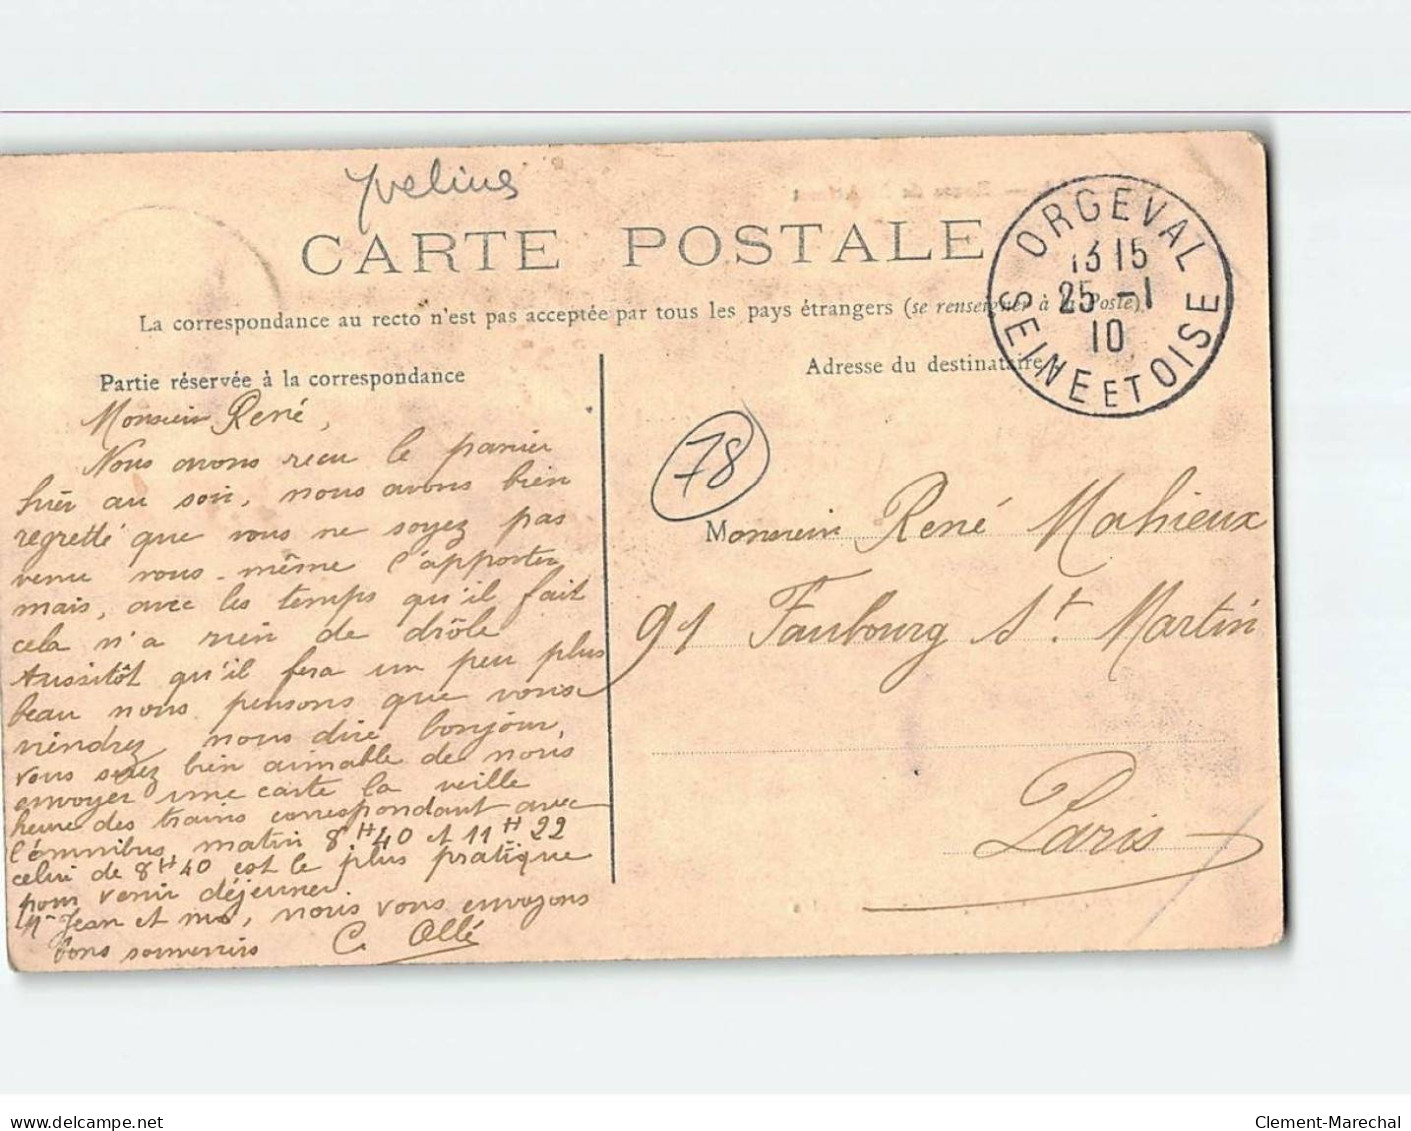 Yvelines
CARTE POSTALE
La correspondance au recto n'est pas acceptée par tous les pays étrangers (se renseigner à la Poste)
ORGEVAL
13 15
25 -1
10
SEINE ET OISE
Partie réservée à la correspondance
Adresse du destinataire
Monsieur René,
Nous avons recu le panier
hier au soir, nous avons bien
regretté que vous ne soyez pas
venu vous-même l'apporter
mais, avec les temps qu'il fait
cela n'a rien de drôle
Aussitôt qu'il fera un peu plus
beau nous pensons que vous
viendrez nous dire bonjour,
vous serez bien aimable de nous
envoyer une carte la veille
heure des trains correspondant avec
l'omnibus matin 8H40 et 11H22
celui de 8H40 est le plus pratique
pour venir déjeuner.
Mr Jean et moi, nous vous envoyons
bons souvenirs C. Ollé
78
Monsieur René Mahieux
91 Faubourg St. Martin
Paris
delcampe.net
Clement-Marechal